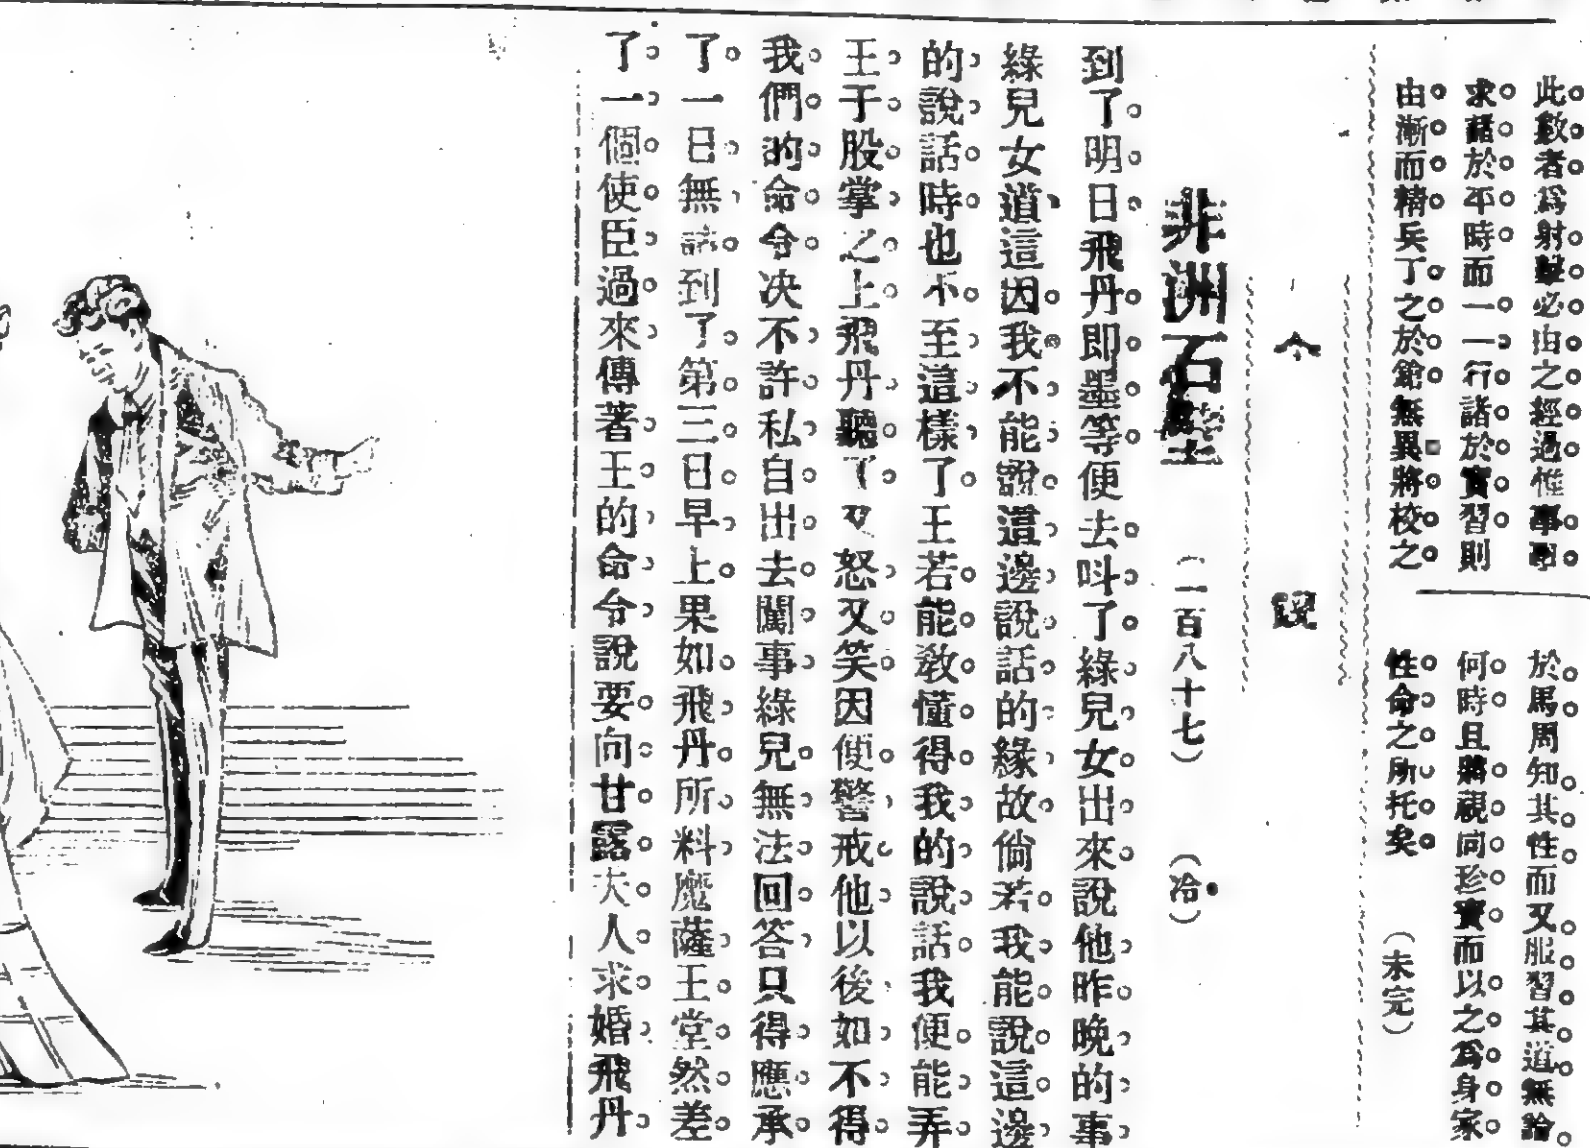 此數者爲射擊必由之經過惟事事
求諸於平時而一一行諸於實習則
由漸而精兵丁之於鎗無異將校之
於馬周知其性而又服習其道無論
何時且將視同珍寶而以之爲身家
性命之所托矣　（未完）
小說
非洲石壁　（一百八十七）　（冷）
到了明日飛丹卽墨等便去叫了綠兒女出來說他昨晚的事
綠兒女道這因我不能說這邊說話的緣故倘若我能說這邊
的說話時也不至這樣了王若能敎懂得我的說話我便能弄
王于股掌之上飛丹聽了又怒又笑因便警戒他以後如不得
我們的命令决不許私自出去闖事綠兒無法回答只得應承
了一日無話到了第三日早上果如飛丹所料魔薩王堂然差
了一個使臣過來傳著王的命令說要向甘露夫人求婚飛丹